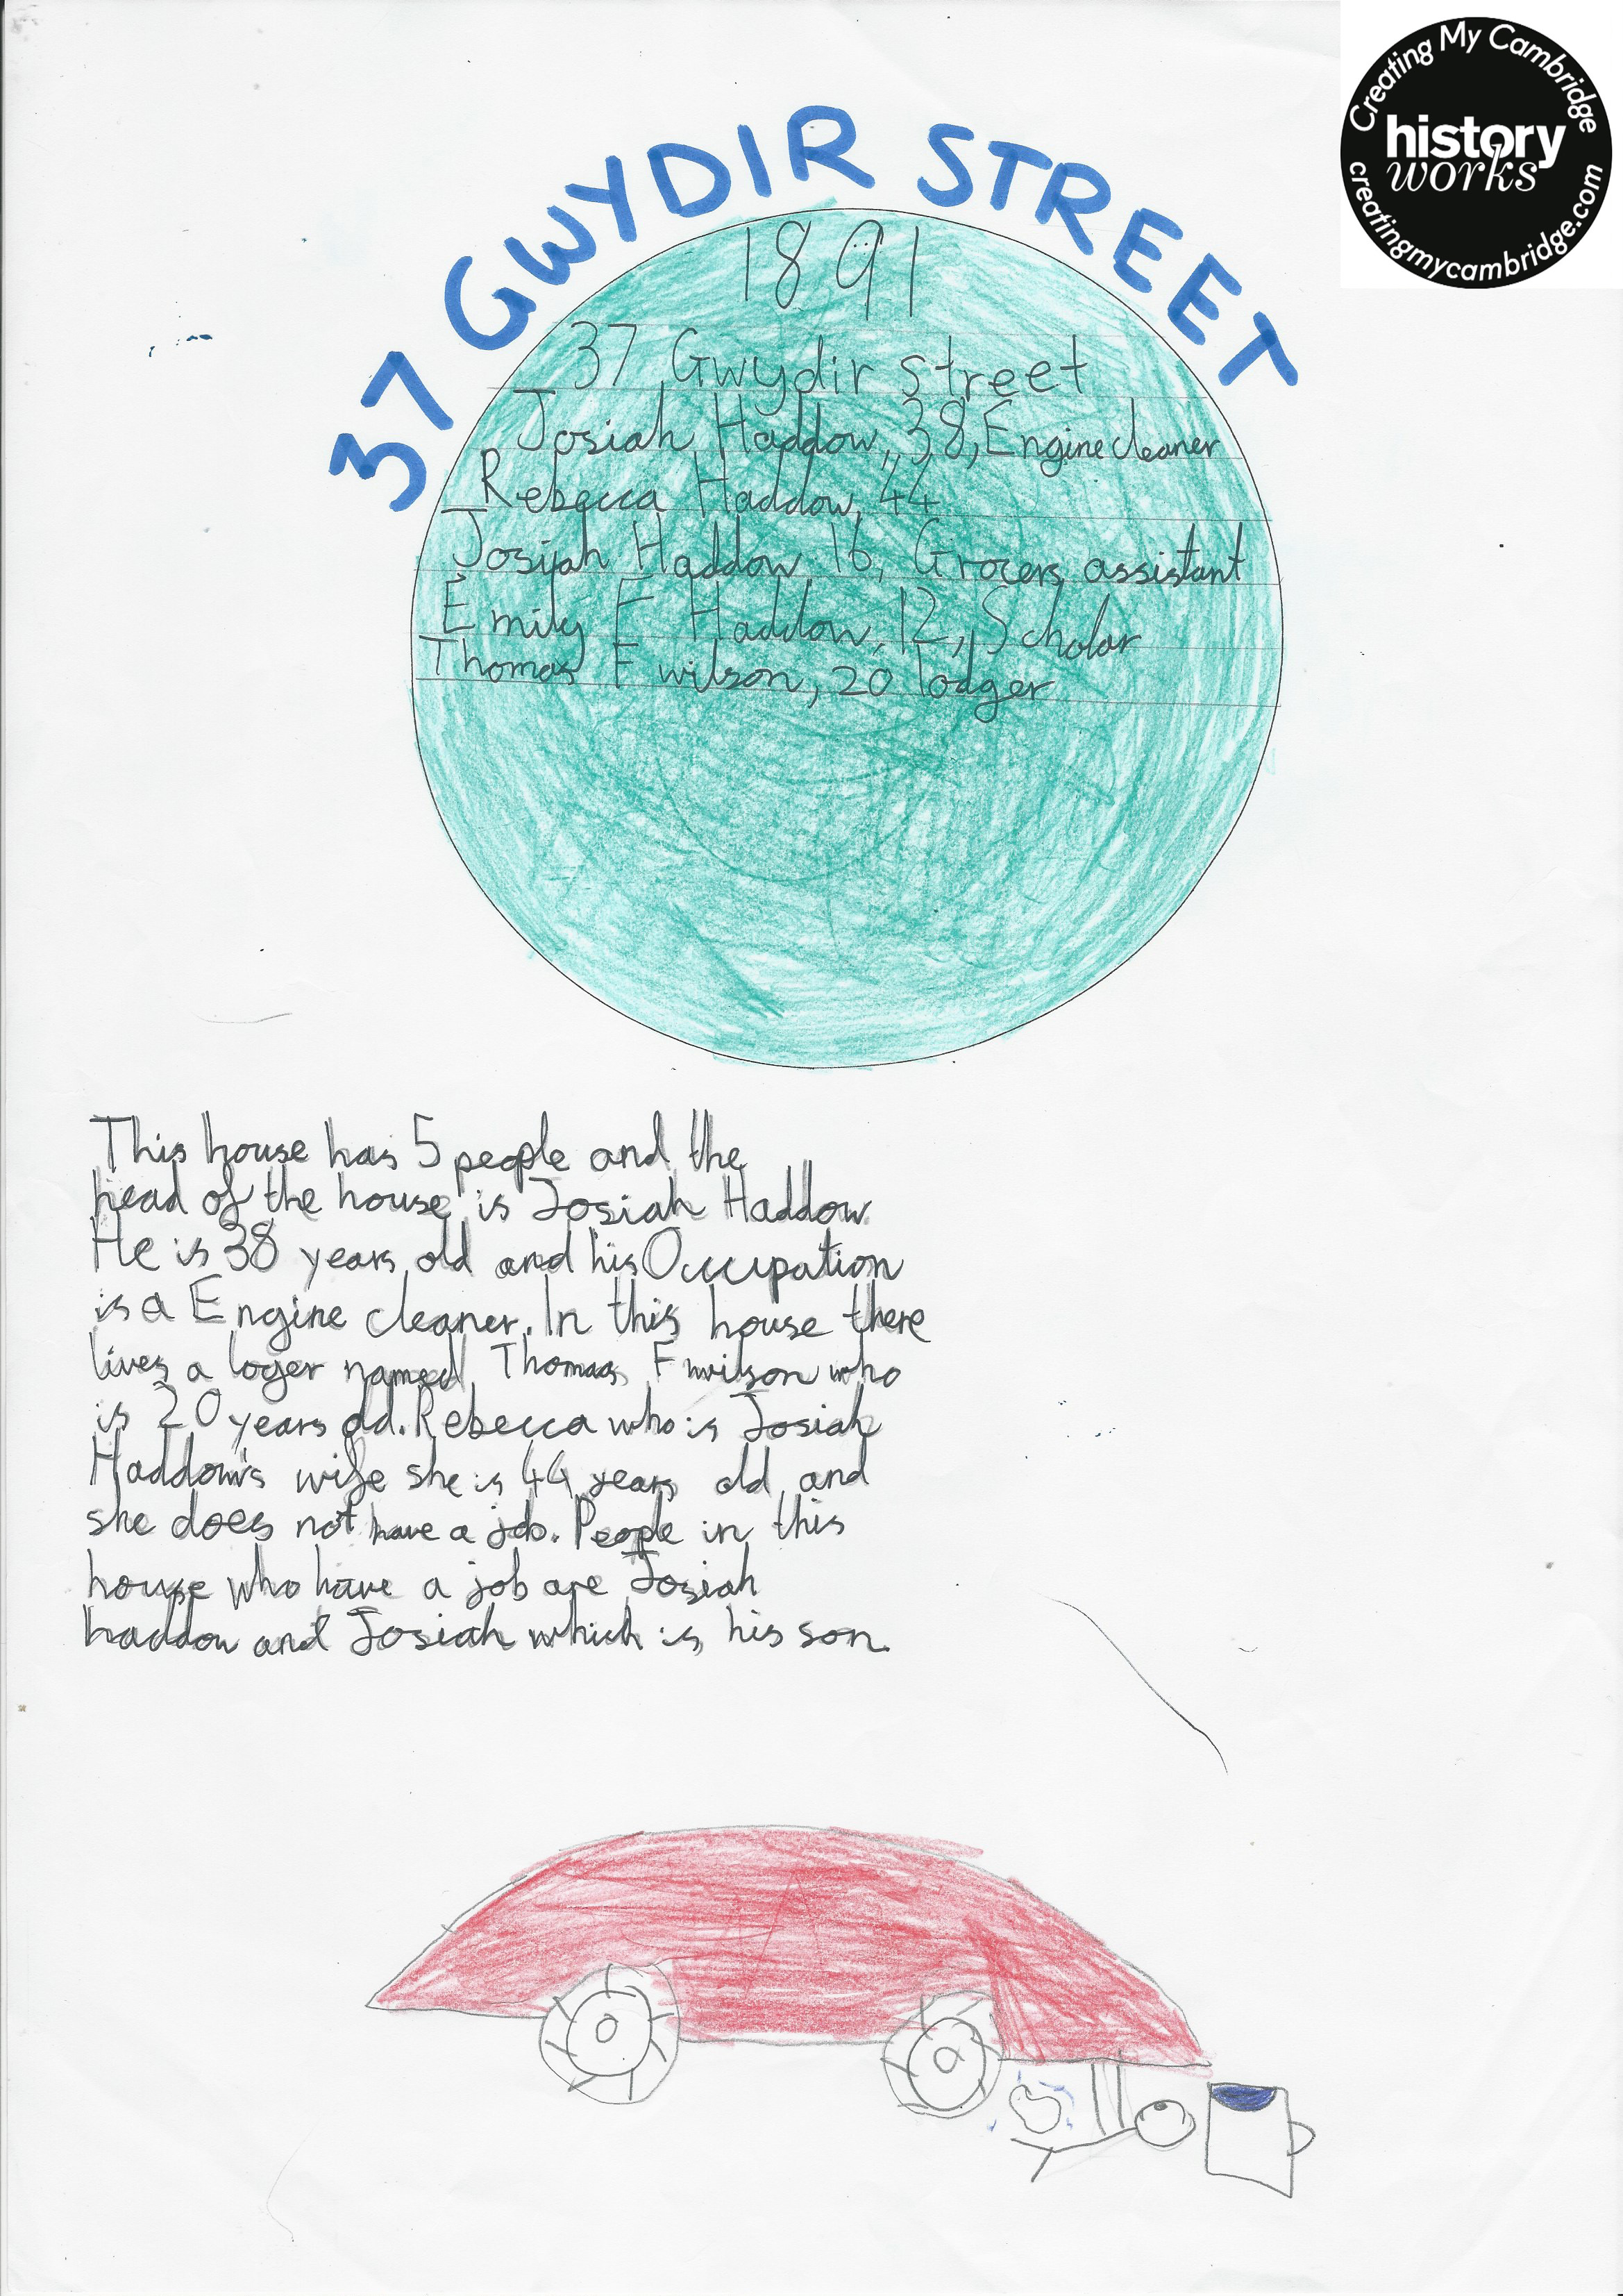 Creating My Cambridge
history
works
creatingmycambridge.com
37 GWYDIR STREET
1891
37 Gwydir street
Josiah Haddow, 38, Engine cleaner
Rebecca Haddow, 44
Josiah Haddow 16, Grocers assistant
Emily E Haddow, 12, Scholar
Thomas F wilson, 20 lodger
This house has 5 people and the
head of the house is Josiah Haddow
He is 38 years old and his Occupation
is a Engine cleaner. In this house there
lives a loger named Thomas F wilson who
is 20 years old. Rebecca who is Josiah
Haddow's wife she is 44 years old and
she does not have a job. People in this
house who have a job are Josiah
haddow and Josiah which is his son.